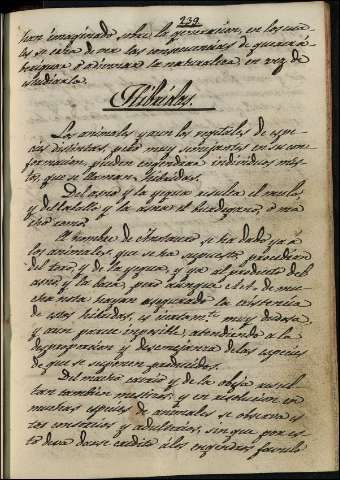 239
han imaginado sobre la generacion, en los cua-
les se echa de ver las consecuencias de querer a-
divinar la naturaleza, en vez de
estudiarla.
Hibridos.
Los animales y aun los vegetales de espe-
cies distintas, pero muy semejantes en su con-
formacion, pueden engendrar individuos mis-
tos, que se llaman Hibridos.
Del asno y la yegua resulta el mulo,
y del caballo y la asna el burdegano, ó ma-
cho romo.
El nombre de se ha dado ya á
los animales, que se ha supuesto procedian
del toro, y de la yegua, y ya al producto del
asno y la baca; pero aunque de mu-
cha nota hayan asegurado la existencia
de estos hibridos, es ciertam.te muy dudosa,
y aun parece imposible, atendiendo a la
desproporcion y desemejanza de las especies
de que se suponen producidos.
Del macho cabrio y de la obeja resul-
tan tambien mestizos; y en resolucion en
muchas especies de animales se observa, es-
tos consorcios y adulterios, sin que por es-
to deva darse credito á los engendros fabulo